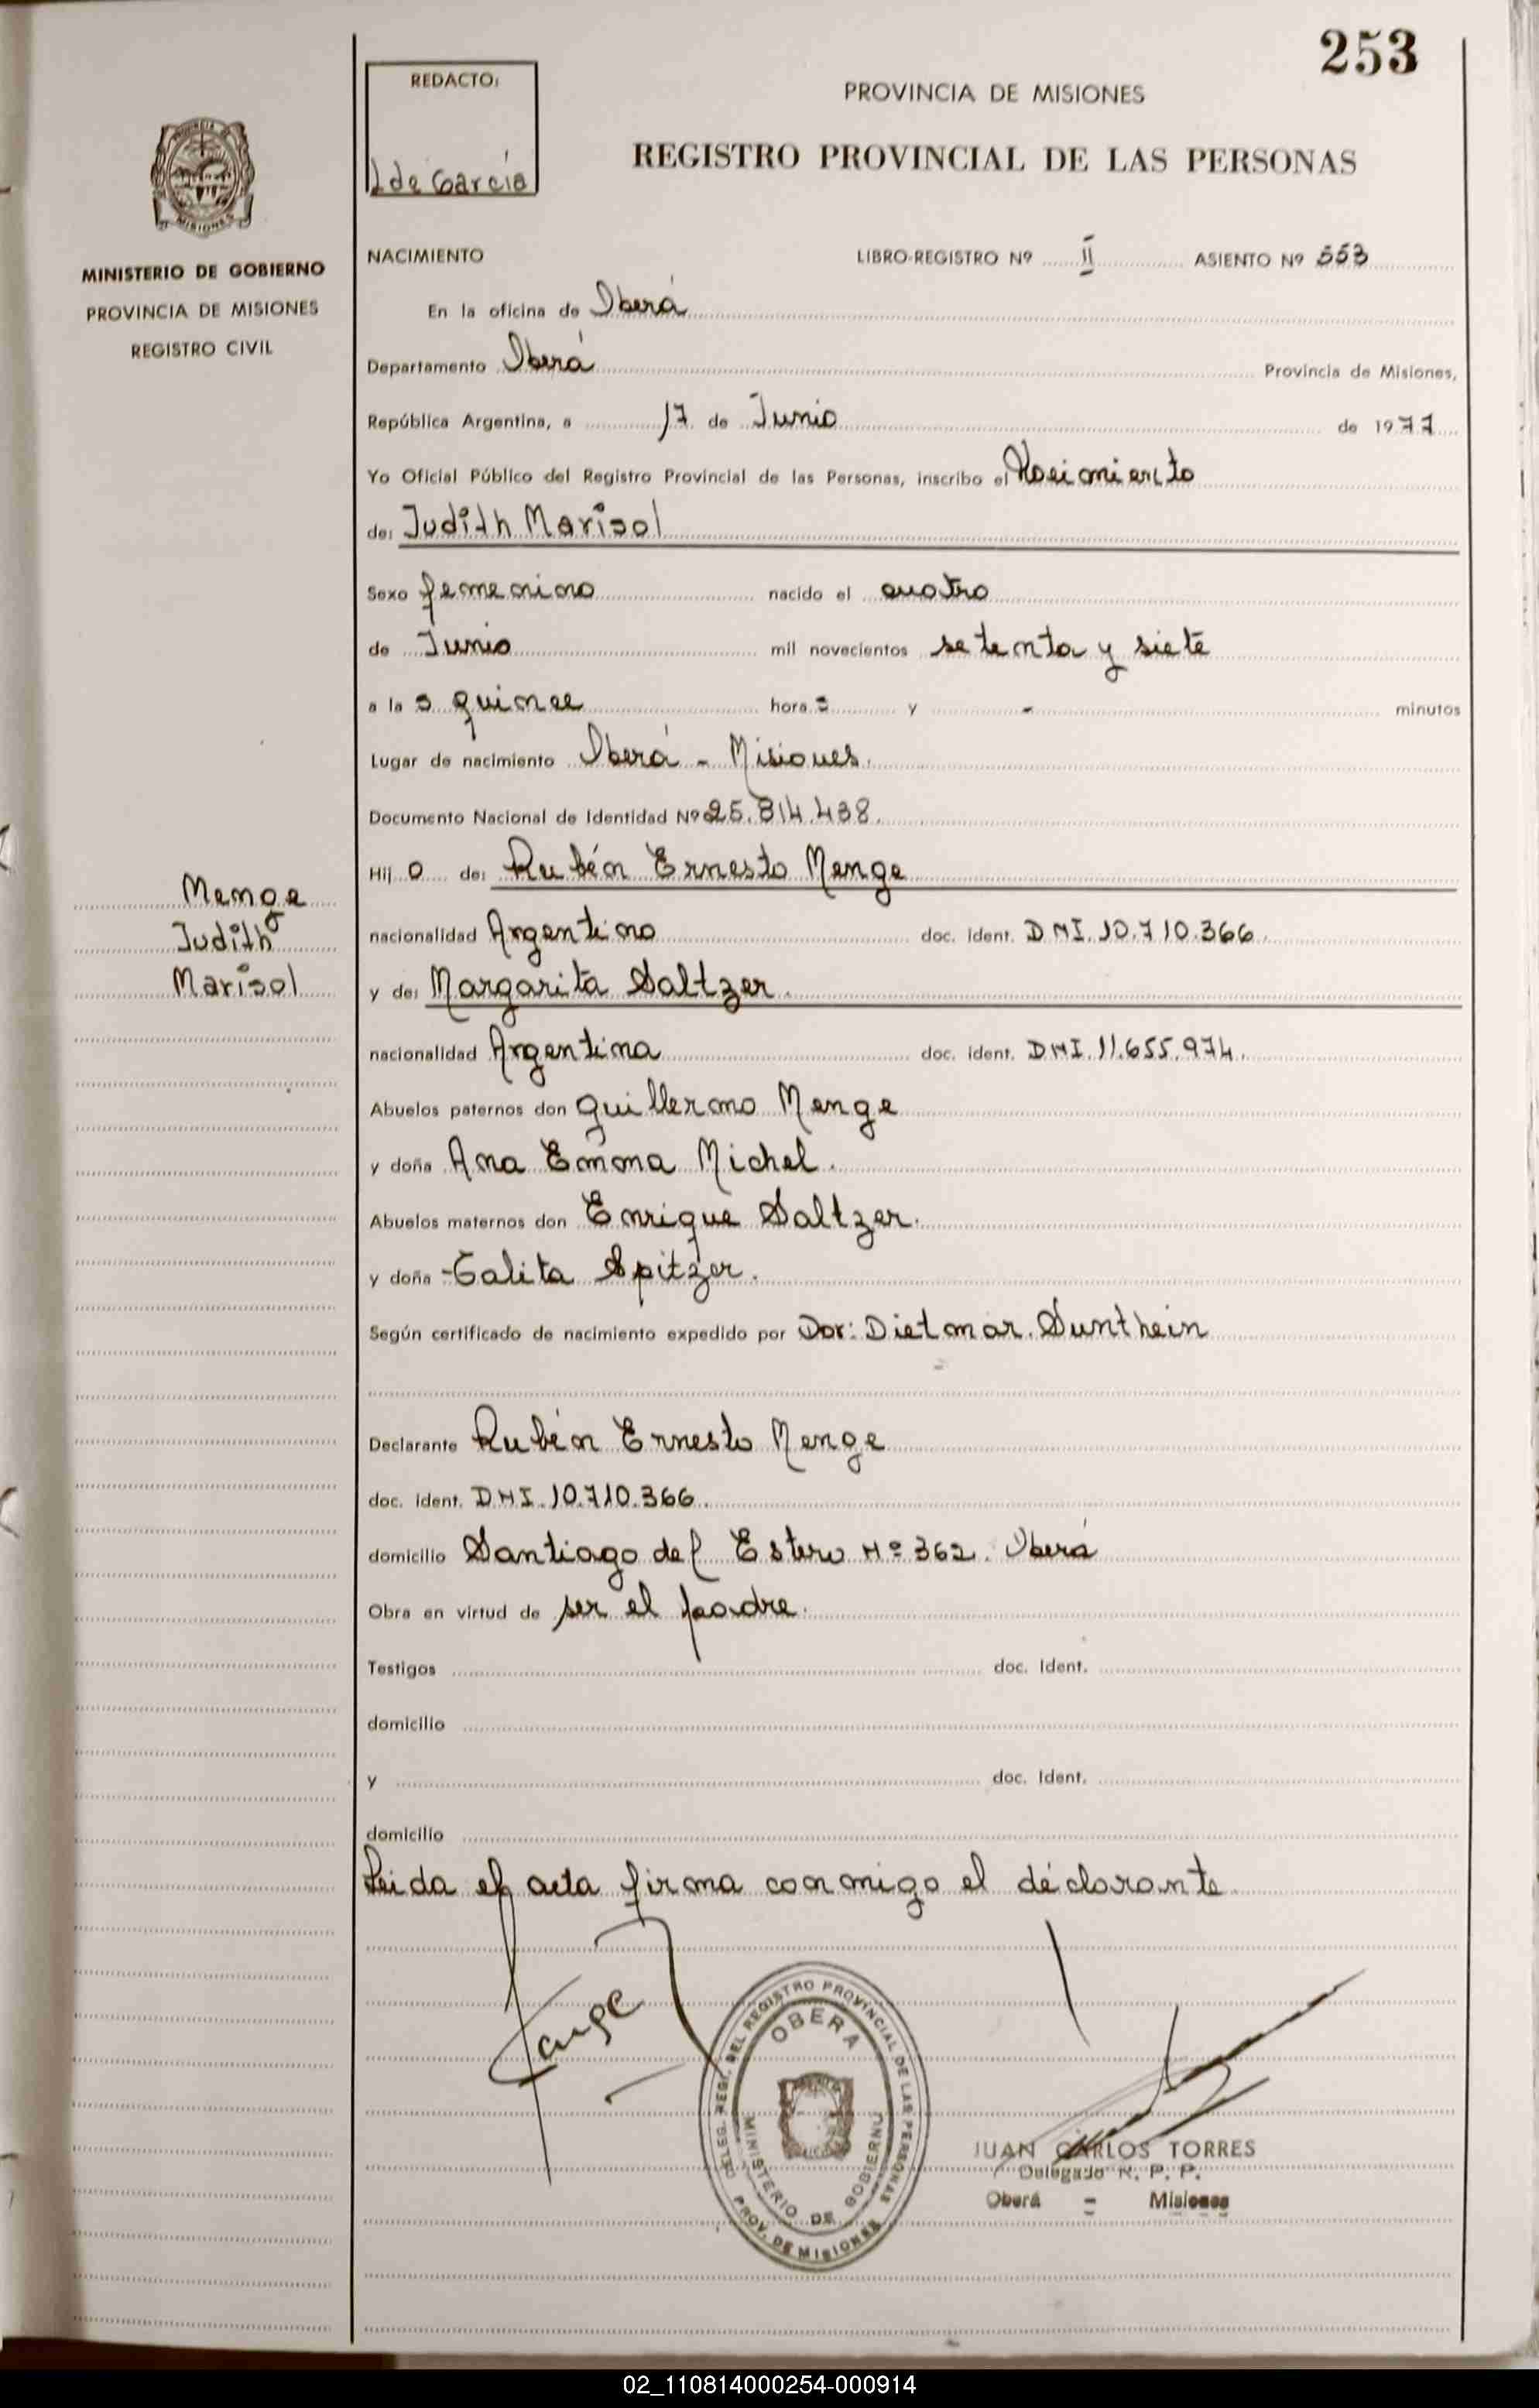 253
REDACTO:
L de García
PROVINCIA DE MISIONES
REGISTRO PROVINCIAL DE LAS PERSONAS
MISIONES
MINISTERIO DE GOBIERNO
PROVINCIA DE MISIONES
REGISTRO CIVIL
NACIMIENTO LIBRO-REGISTRO Nº II ASIENTO Nº 553
En la oficina de Oberá
Departamento Oberá Provincia de Misiones,
República Argentina, a 17 de Junio de 1977
Yo Oficial Público del Registro Provincial de las Personas, inscribo el Nacimiento
de: Judith Marisol
Sexo femenino nacido el cuatro
de Junio mil novecientos setenta y siete
a la s quince hora s y - minutos
Lugar de nacimiento Oberá - Misiones.
Documento Nacional de Identidad Nº 25.814.438.
Hij a de: Rubén Ernesto Menge
Menge
Judith
Marisol
nacionalidad Argentino doc. ident. DNI. 10.710.366.
y de: Margarita Saltzer.
nacionalidad Argentina doc. ident. DNI. 11.655.974.
Abuelos paternos don Guillermo Menge
y doña Ana Emma Michel.
Abuelos maternos don Enrique Saltzer.
y doña Talita Spitzer.
Según certificado de nacimiento expedido por Dor: Dietmar. Sunthein
Declarante Rubén Ernesto Menge
doc. ident. DNI. 10.710.366.
domicilio Santiago del Estero Nº 362. Oberá
Obra en virtud de ser el padre.
Testigos doc. Ident.
domicilio
y doc. Ident.
domicilio
Leida el acta firma conmigo el declarante
DELEG. REGI. DEL REGISTRO PROVINCIAL DE LAS PERSONAS
OBERA
MINISTERIO DE GOBIERNO
PROV. DE MISIONES
JUAN CARLOS TORRES
Delegado R. P. P.
Oberá - Misiones
02_110814000254-000914